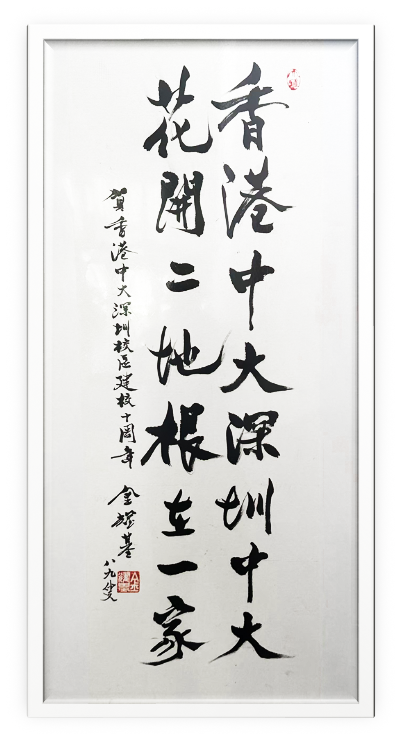 香港中大深圳中大
花開二地根在一家
賀香港中大深圳校區建校十周年
金耀基
八九叟